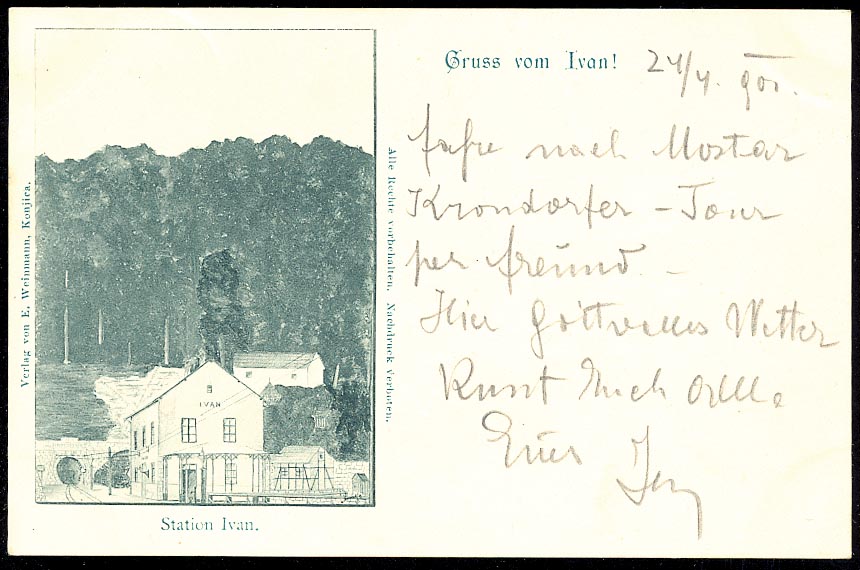 Gruss vom Ivan! 24/4. 900.
fahre nach Mostar
Krondorfer - Tour
per Freund -
Hier Gottvolles Wetter
Euch Alle
Euer
Alle Rechte vorbehalten. Nachdruck verboten.
Verlag von E. Weinmann, Konjica.
IVAN
Station Ivan.